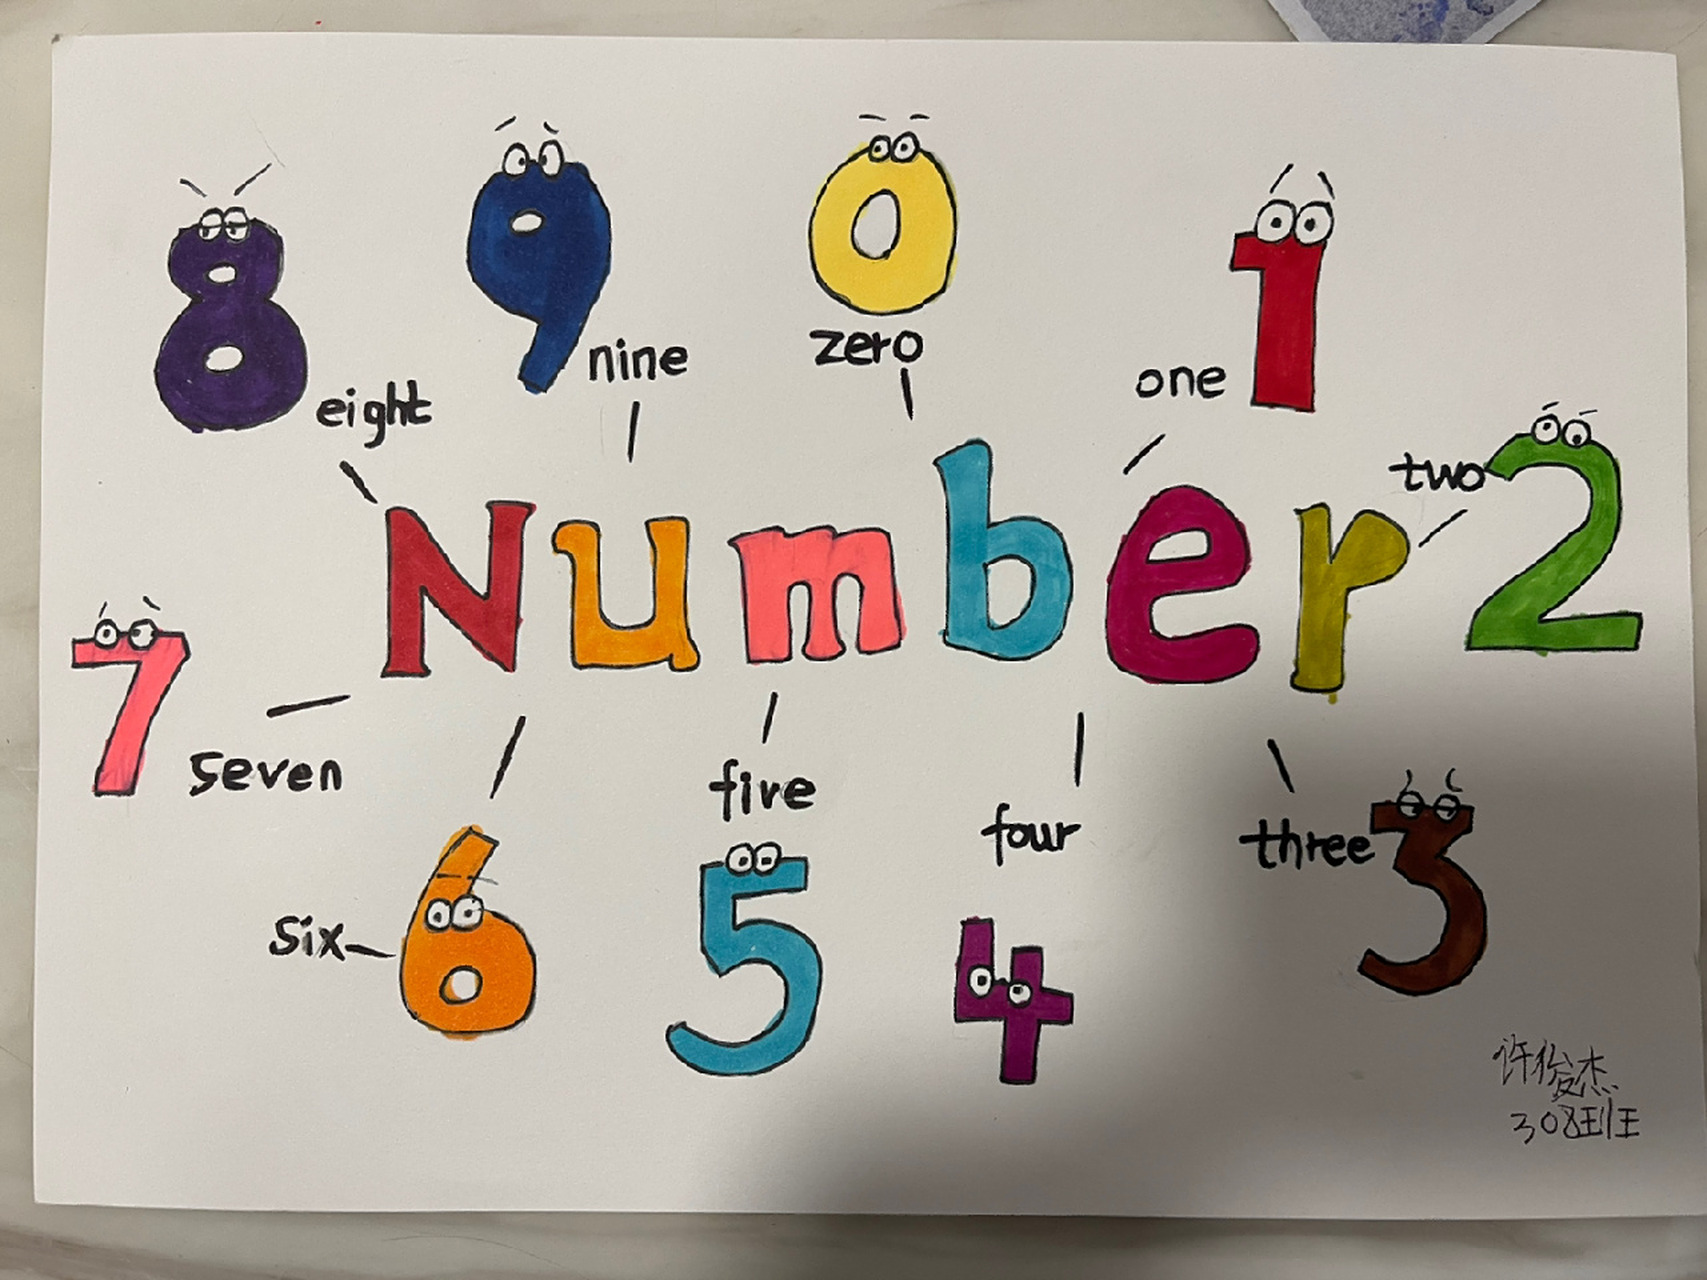 8
eight
9
nine
0
zero
1
one
2
two
Number
7
seven
6
six
five
5
four
4
three
3
许俊杰
308班